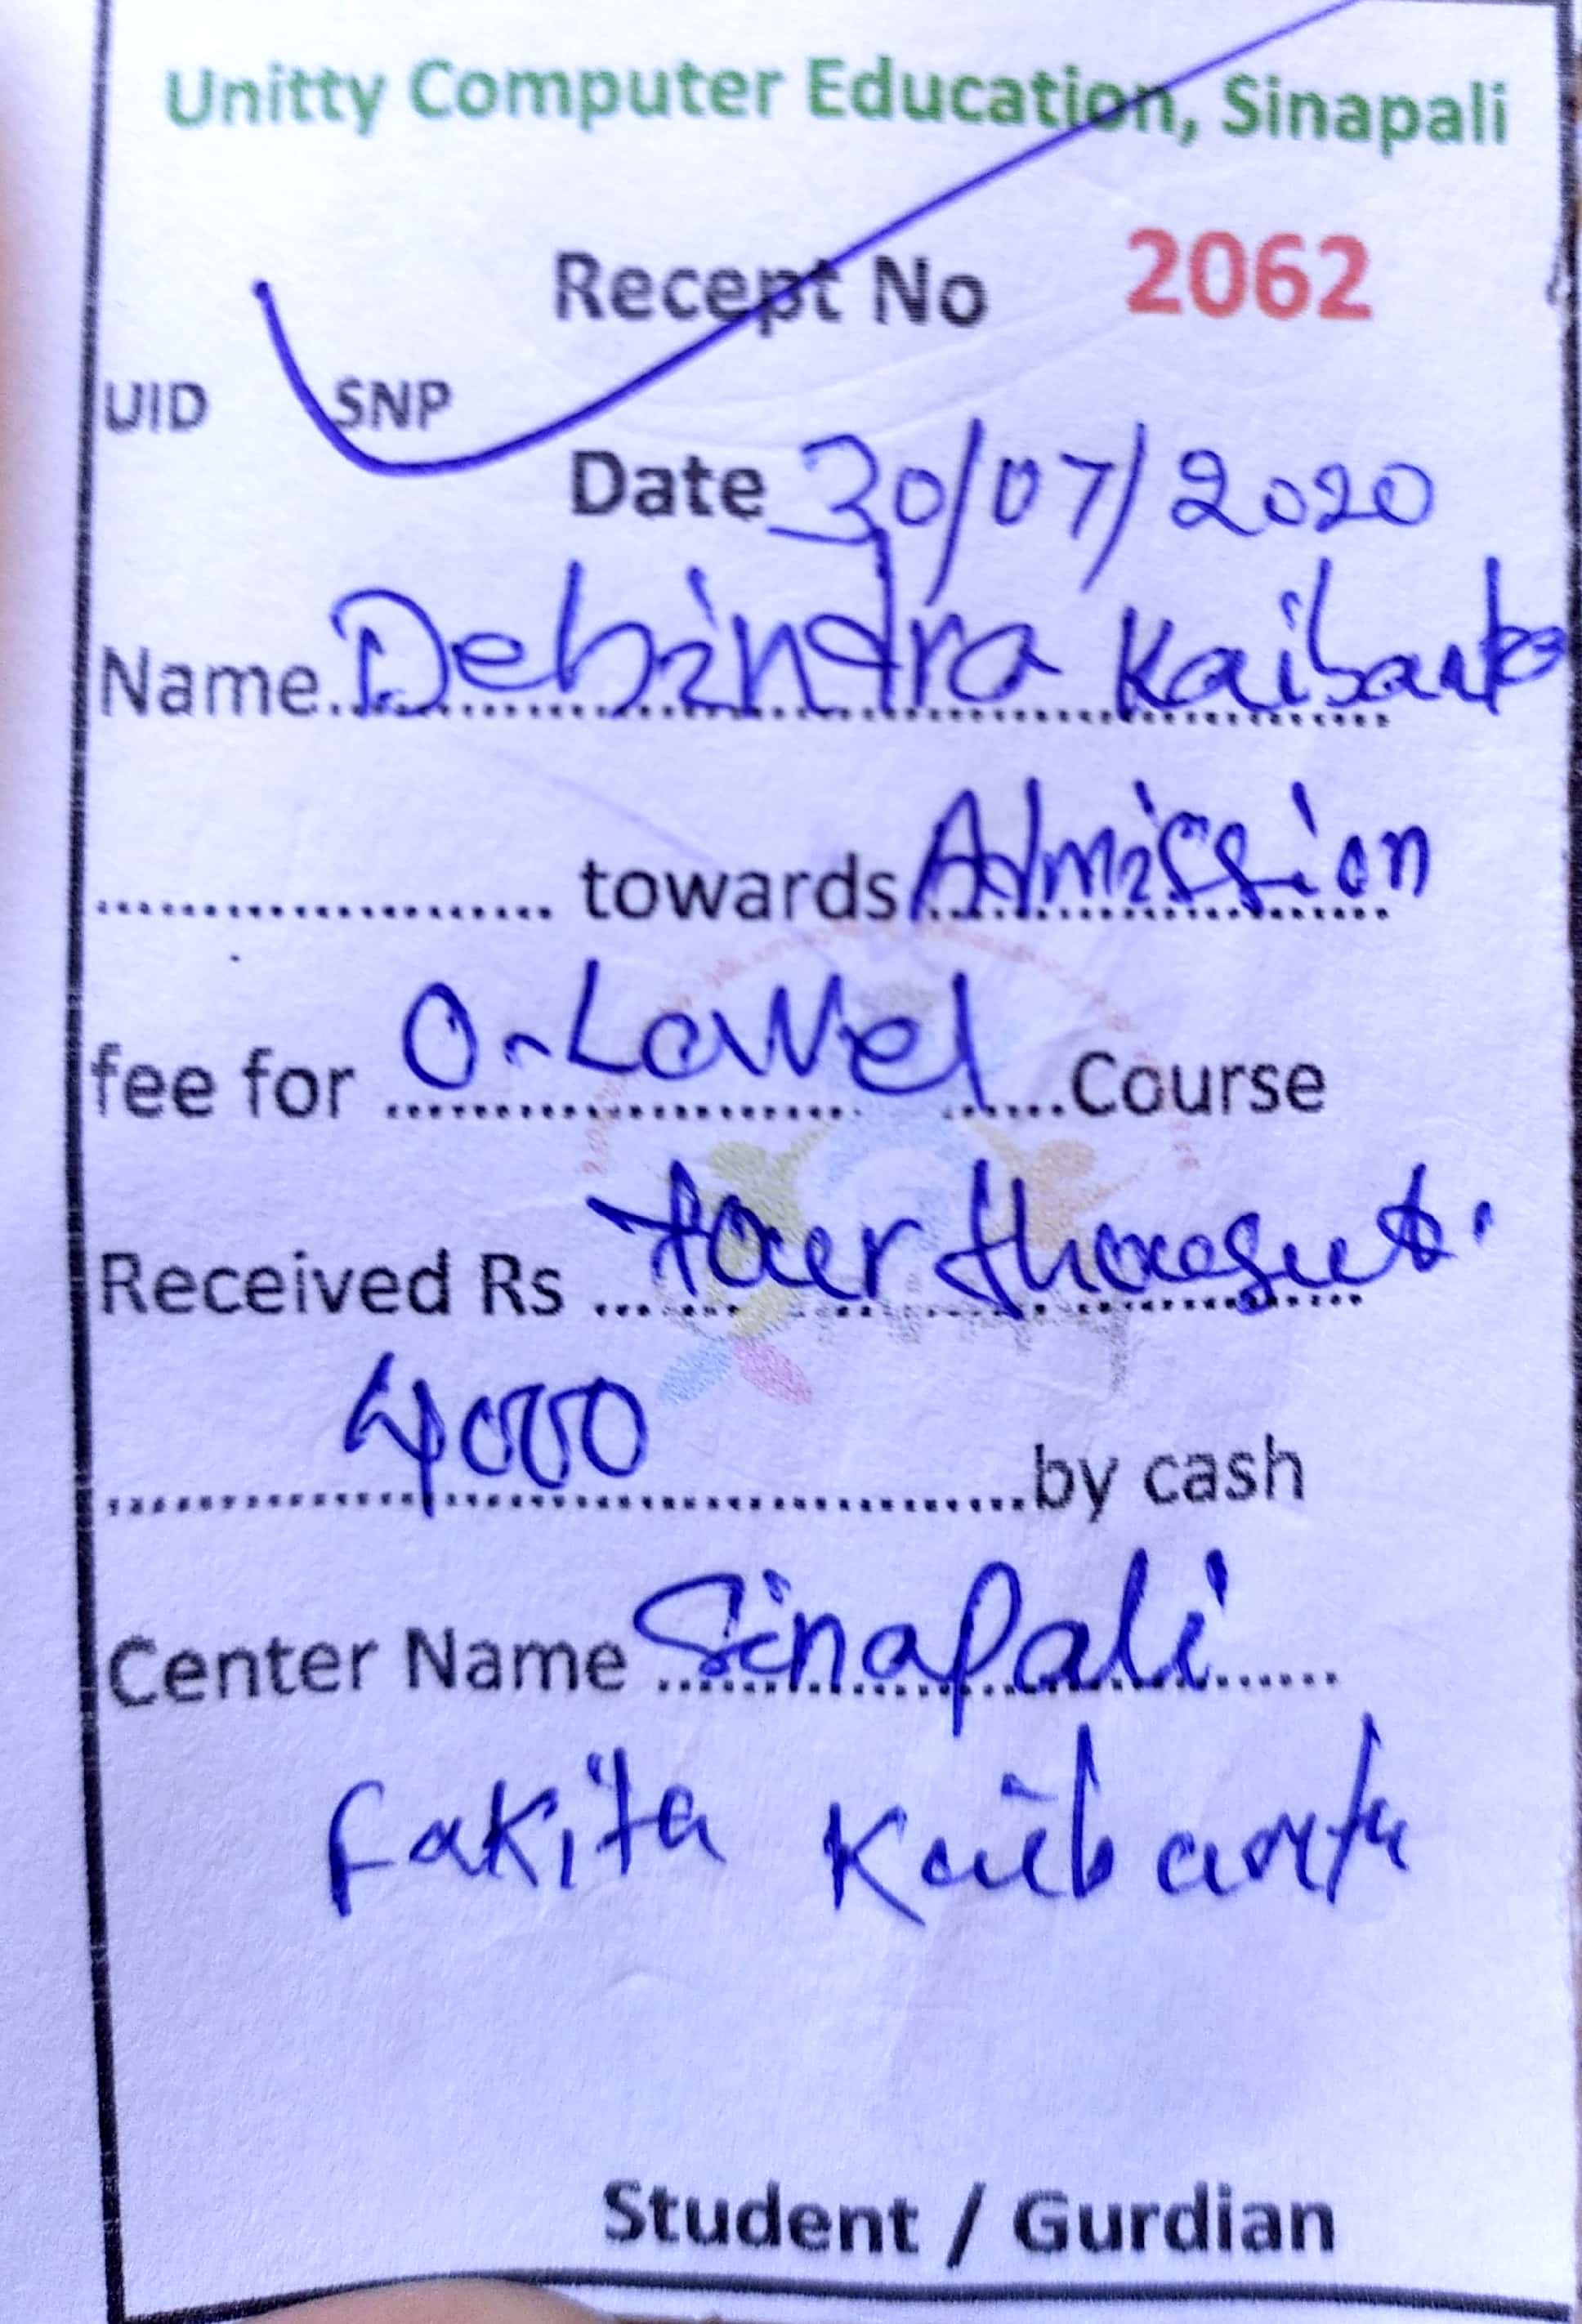 Unitty Computer Education, Sinapali
Recept No 2062
UID SNP
Date 30/07/2020
Name Debindra Kaibarta
towards Admission
fee for O-Lavel Course
Received Rs four
4000 by cash
Center Name Sinapali
Fakita Kaibarta
Student / Gurdian